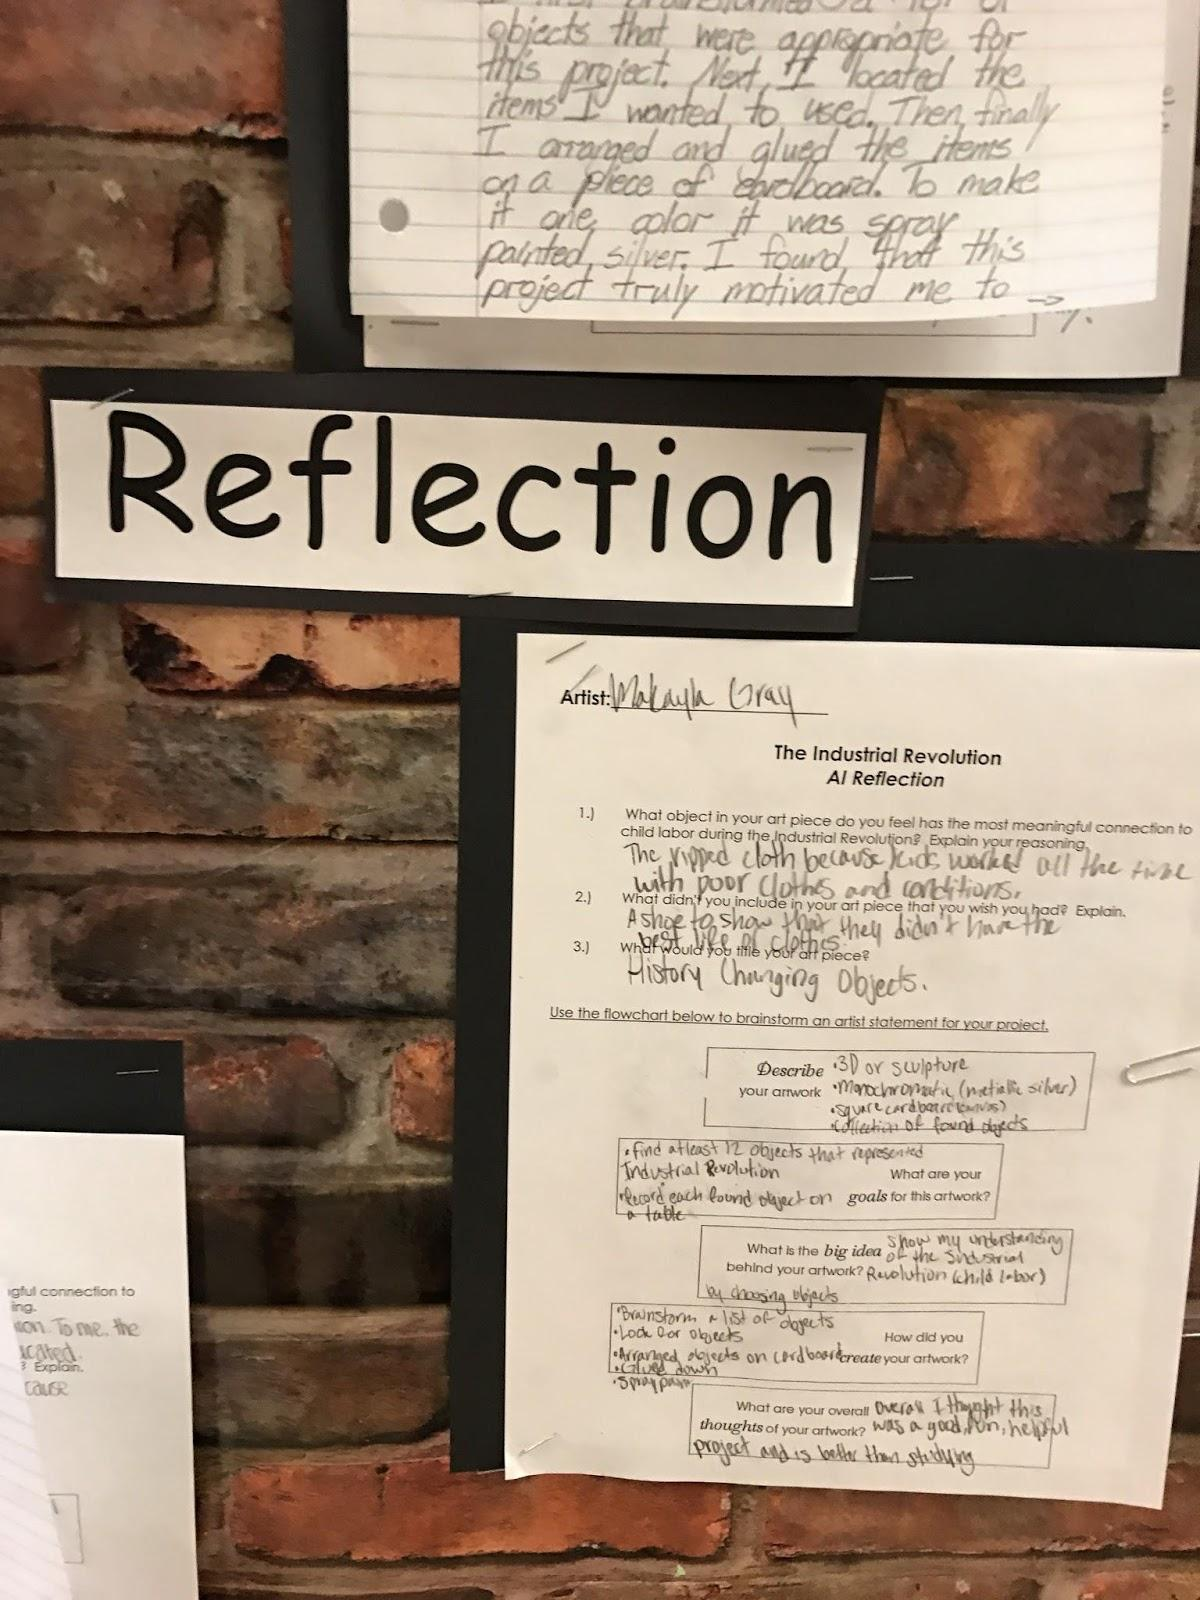 objects that were appropriate for
this project. Next, I located the
items I wanted to used. Then finally
I arranged and glued the items
on a piece of cardboard. To make
it one color it was spray
painted silver. I found that this
project truly motivated me to →
Reflection
Artist: Makayla Gray
The Industrial Revolution
AI Reflection
1.) What object in your art piece do you feel has the most meaningful connection to
child labor during the Industrial Revolution? Explain your reasoning.
The ripped cloth because kids worked all the time
with poor clothes and conditions.
2.) What didn't you include in your art piece that you wish you had? Explain.
A shoe to show that they didn't have the
best of clothes.
3.) What would you title your art piece?
History Changing Objects.
Use the flowchart below to brainstorm an artist statement for your project.
Describe •3D or sculpture
your artwork •Monochromatic (metallic silver)
•square cardboard (canvas)
•collection of found objects
•find atleast 12 objects that represented
Industrial Revolution What are your
•Record each found object on goals for this artwork?
a table
What is the big idea show my understanding
of the Industrial
behind your artwork? Revolution (child labor)
by choosing objects
•Brainstorm a list of objects
•Look for objects How did you
•Arranged objects on cardboard create your artwork?
•Glued down
•Spray paint
What are your overall Overall I thought this
thoughts of your artwork? was a good, fun, helpful
project and is better than studying
gful connection to
ing.
ion. To me, the
ucated.
? Explain.
cause